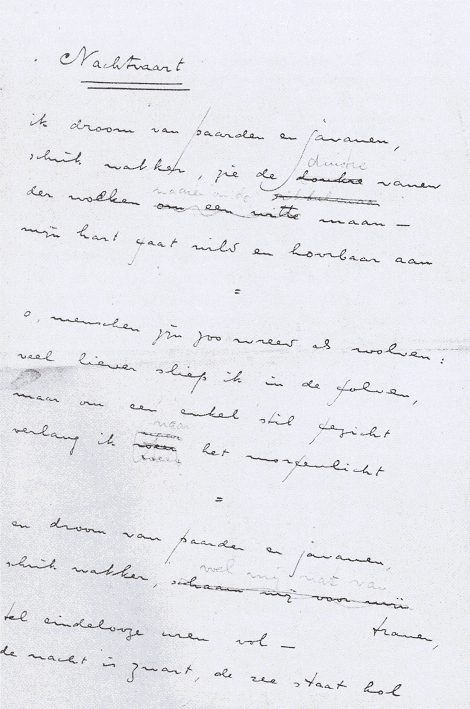 Nachtvaart
ik droom van paarden en javanen,
duistre
schrik wakker, zie de donkre vanen
waaien in de
der wolken om een witte maan –
mijn hart gaat wild en hoorbaar aan
=
o, menschen zijn zoo wreed als wolven:
veel liever sliep ik in de golven,
maar om een enkel stil gezicht
naar
verlang ik weer het morgenlicht
=
en droom van paarden en javanen,
voel mij nat van
schrik wakker, schaam mij voor mijn
tranen,
tel eindelooze uren vol –
de nacht is zwart, de zee staat hol